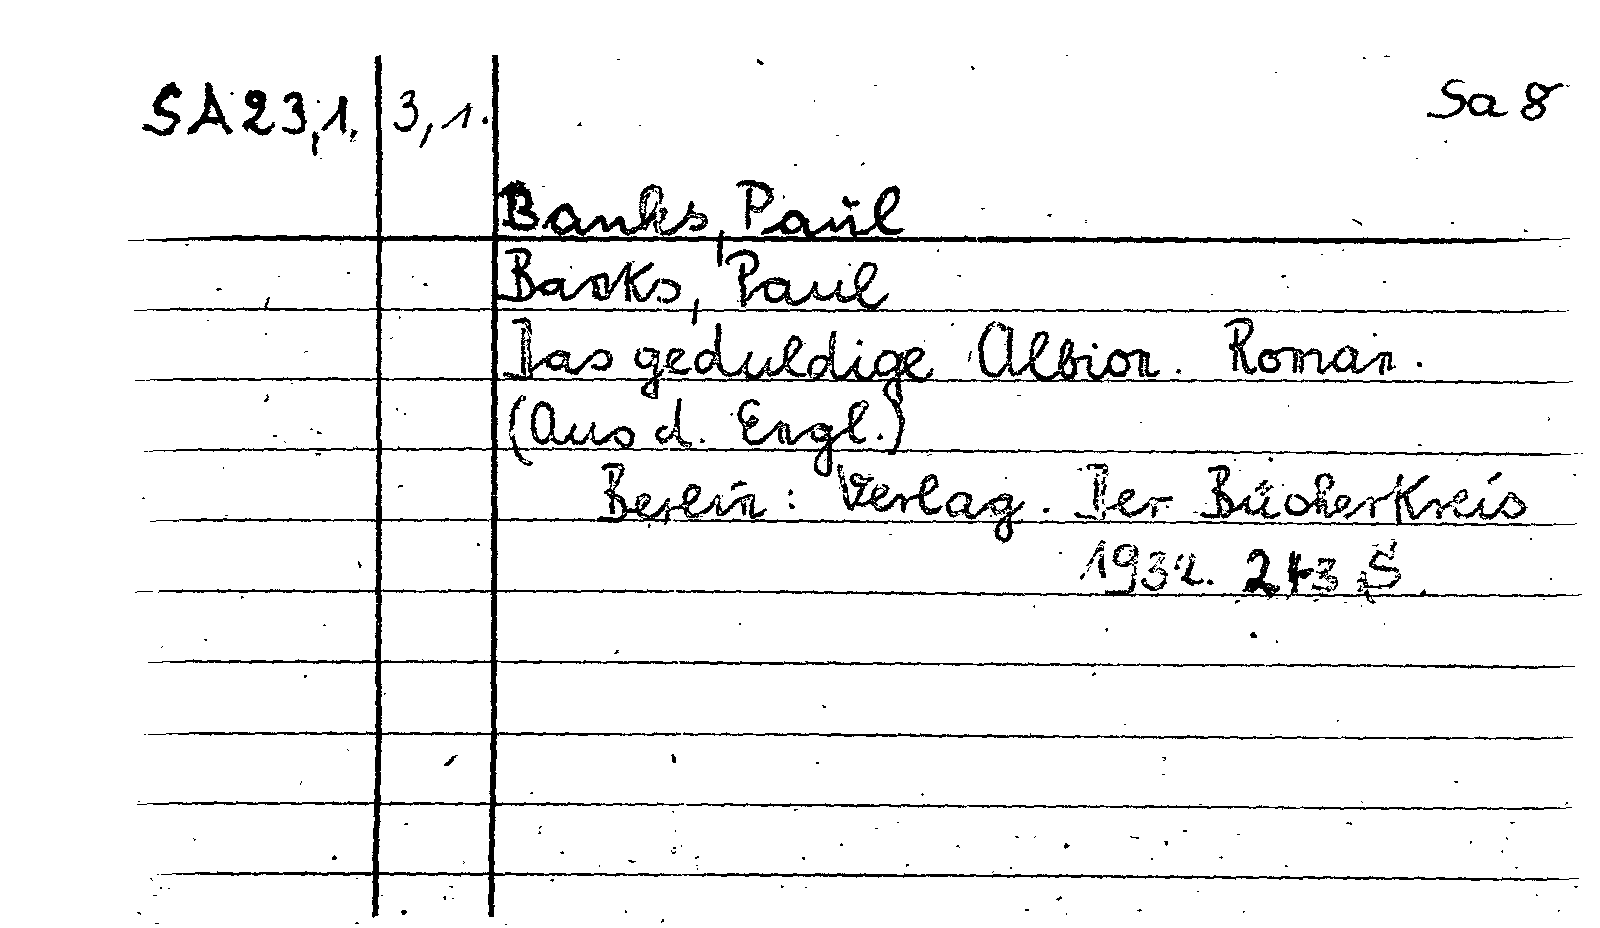 SA 23,1. 3,1. Sa 8
Banks, Paul
Banks, Paul
Das geduldige Albion. Roman.
(Aus d. Engl.)
Berlin: Verlag. Der Bücherkreis
1932. 243 S.